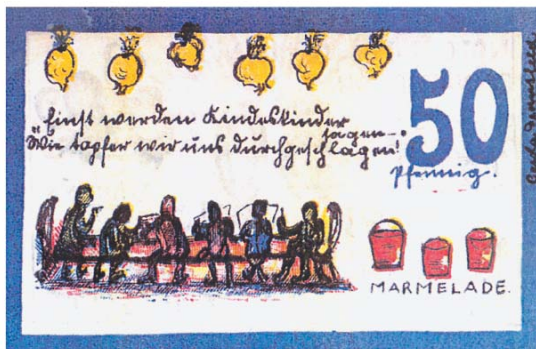 Einst werden Kindeskinder
sagen—:
"Wie tapfer wir uns durchgeschlagen!"
50
Pfennig.
MARMELADE.